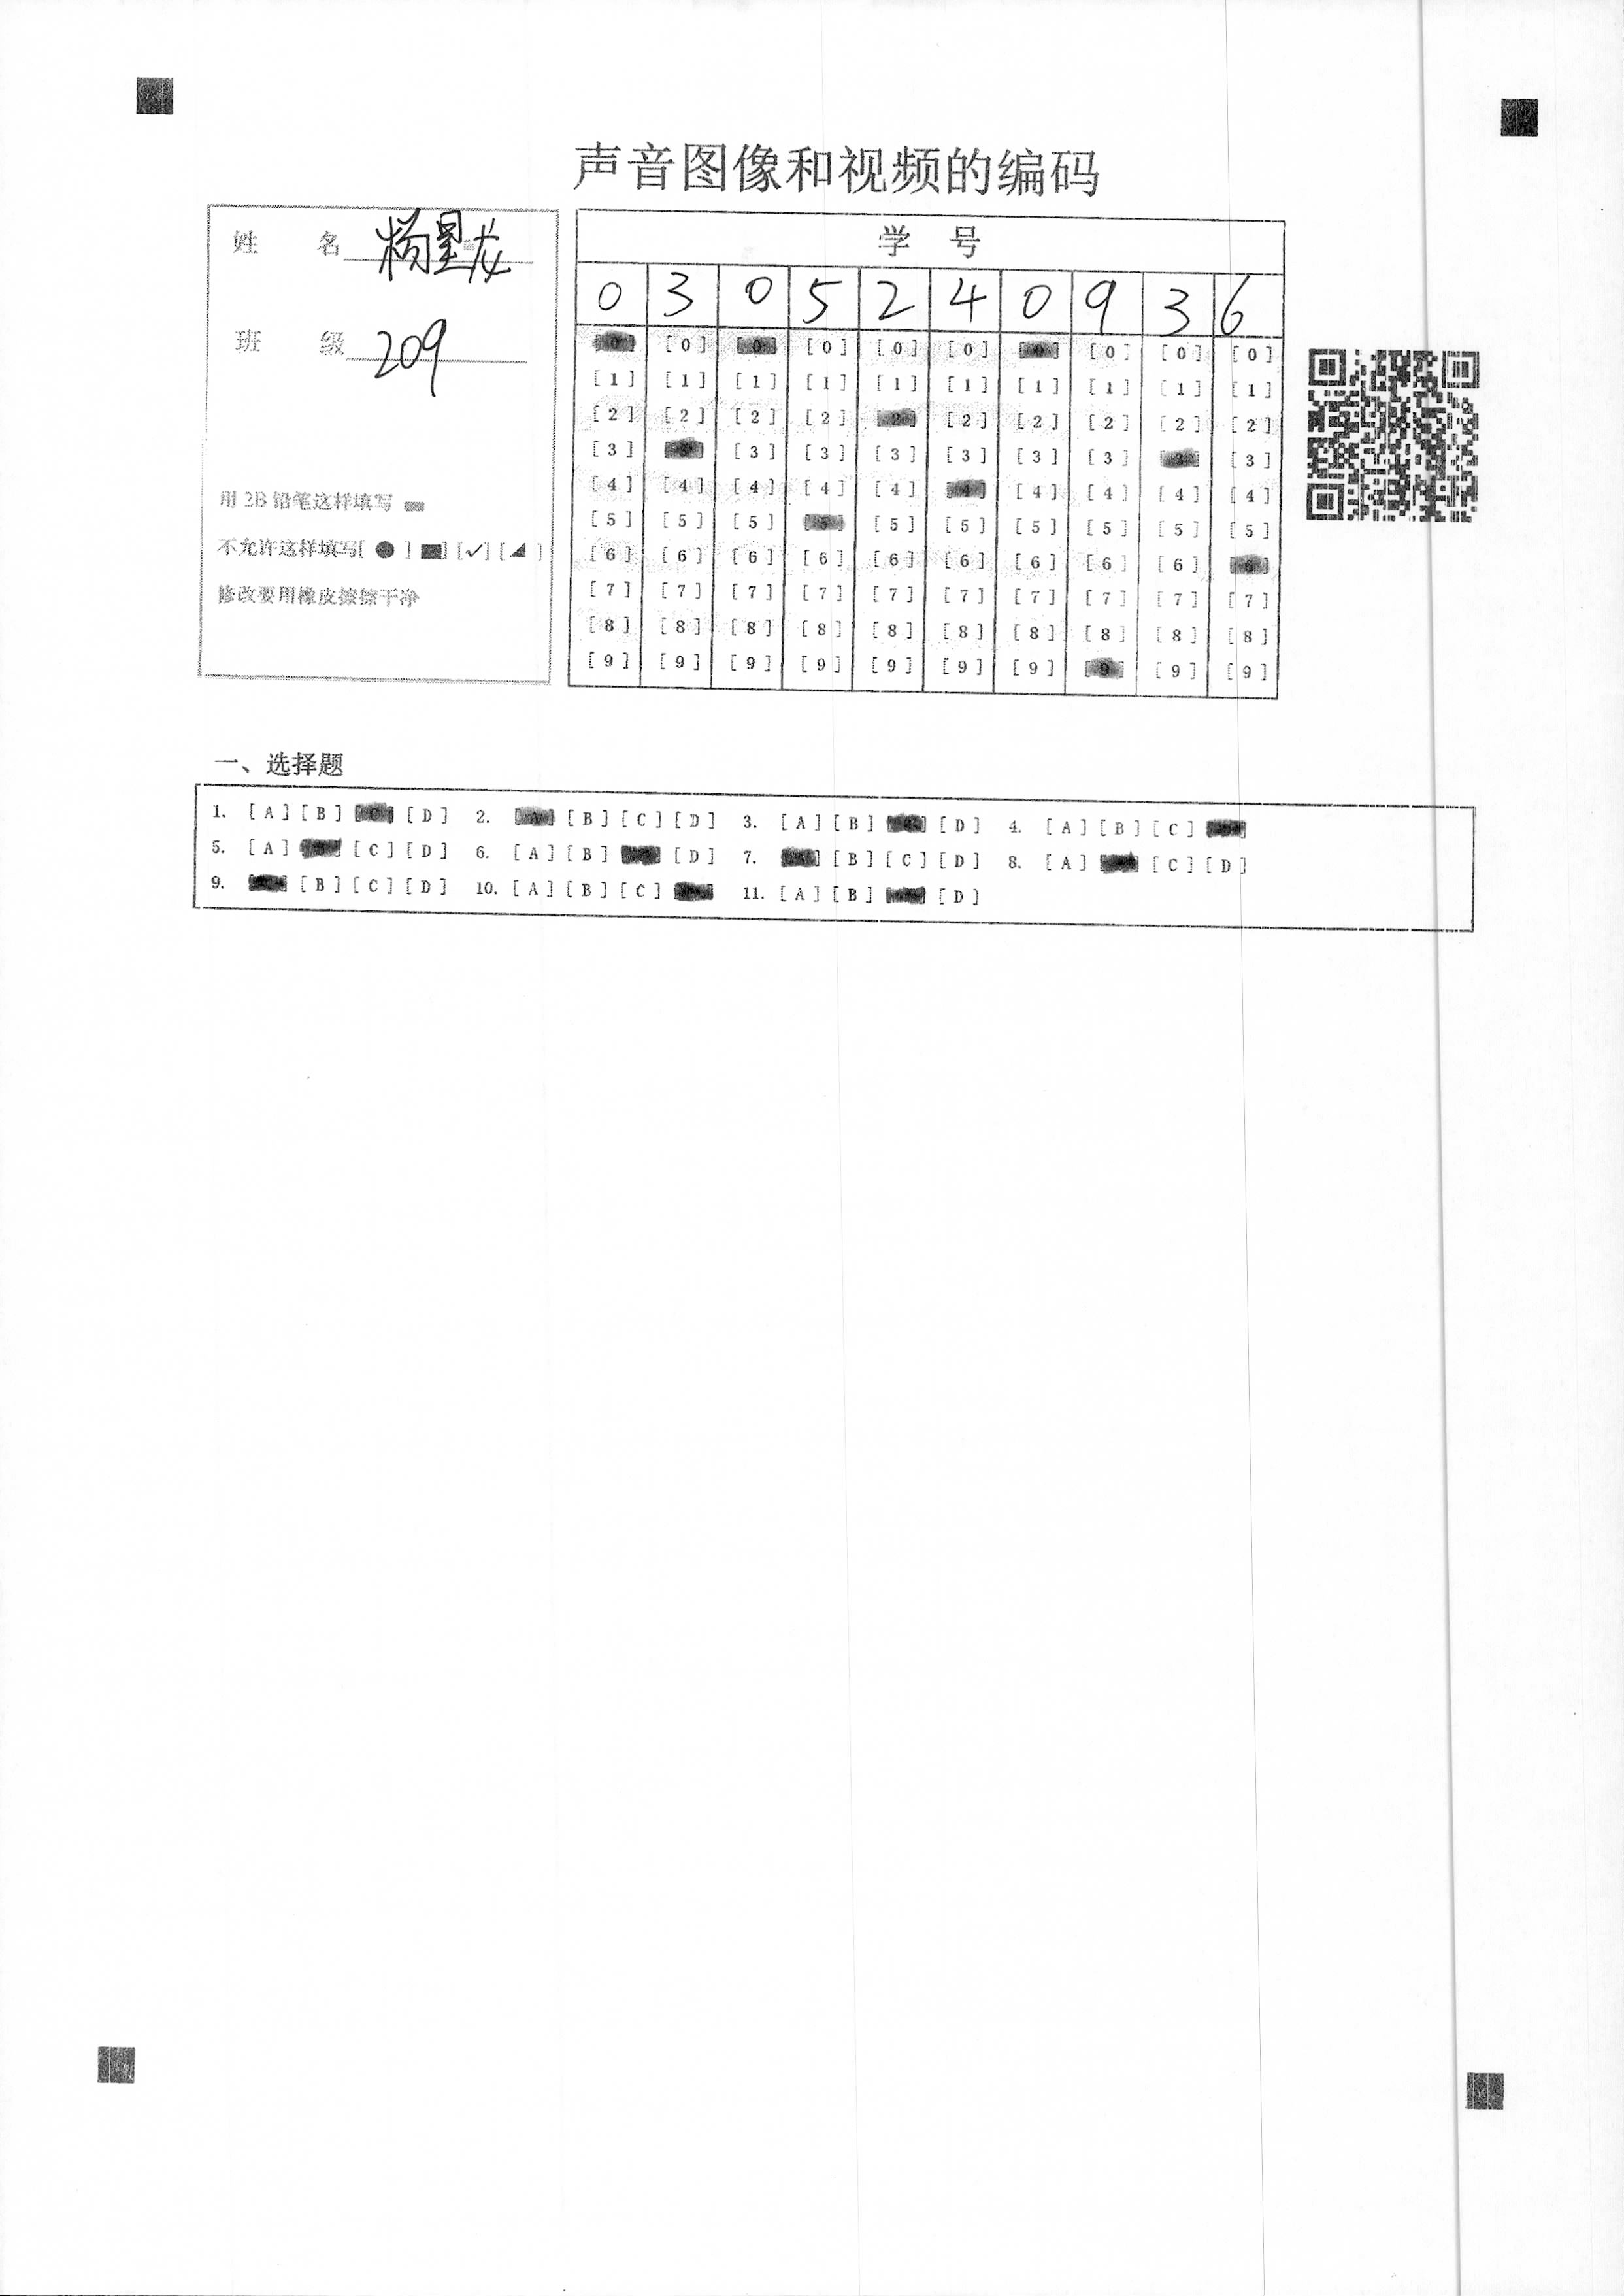 声音图像和视频的编码
姓 名 杨星龙
班 级 209
用 2B 铅笔这样填写
不允许这样填写[ ● ] [■] [✓] [◢ ]
修改要用橡皮擦擦干净
学 号
0 3 0 5 2 4 0 9 3 6
[0] [0] [0] [0] [0] [0] [0] [0] [0] [0]
[1] [1] [1] [1] [1] [1] [1] [1] [1] [1]
[2] [2] [2] [2] [2] [2] [2] [2] [2] [2]
[3] [3] [3] [3] [3] [3] [3] [3] [3] [3]
[4] [4] [4] [4] [4] [4] [4] [4] [4] [4]
[5] [5] [5] [5] [5] [5] [5] [5] [5] [5]
[6] [6] [6] [6] [6] [6] [6] [6] [6] [6]
[7] [7] [7] [7] [7] [7] [7] [7] [7] [7]
[8] [8] [8] [8] [8] [8] [8] [8] [8] [8]
[9] [9] [9] [9] [9] [9] [9] [9] [9] [9]
一、选择题
1. [A] [B] [D] 2. [B] [C] [D] 3. [A] [B] [D] 4. [A] [B] [C]
5. [A] [C] [D] 6. [A] [B] [D] 7. [B] [C] [D] 8. [A] [C] [D]
9. [B] [C] [D] 10. [A] [B] [C] 11. [A] [B] [D]